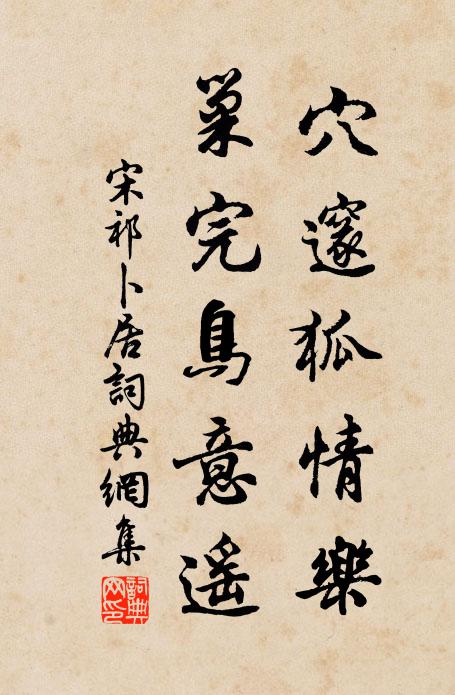 穴邃狐情樂
巢完鳥意遥
宋祁卜居詞典網集
詞典网印